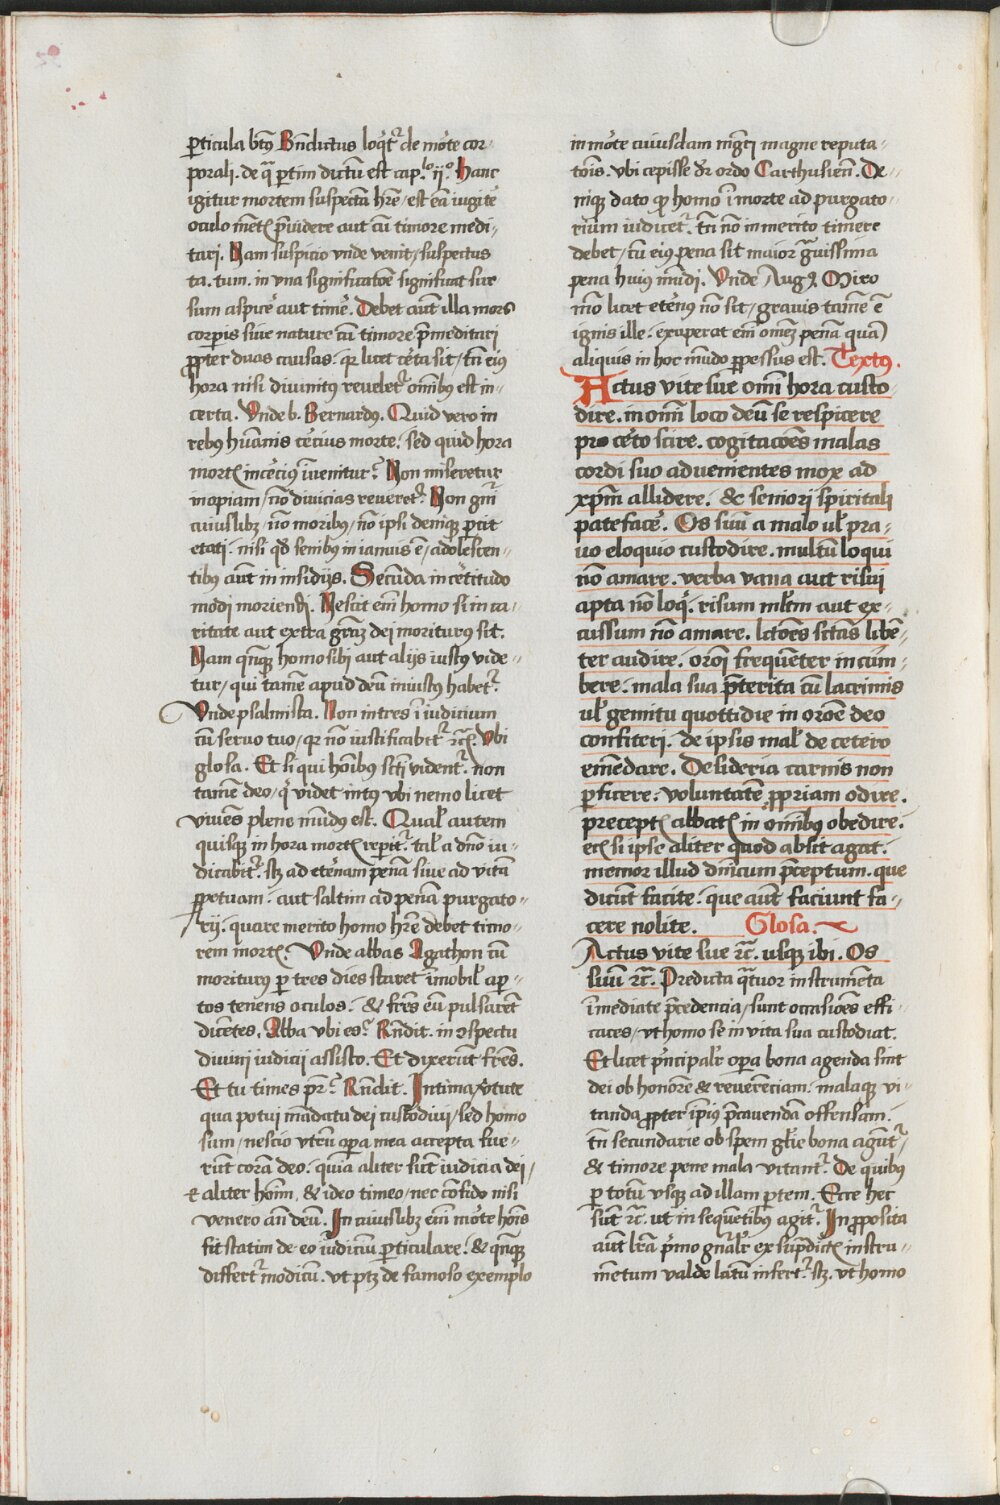 ꝑticula btꝰ Bn̄dictus loqͥtᷣ de mōte cor-
porali. de qᷓ ꝑtim dictū est cap.ˡᵒ ij.ᵒ Hanc
igitur mortem suspectā hr̄e, est eā iugitͤ
oculo mētꝭ p̄uidere aut cū timore medi-
tari. Nam suspicio vnde venit, suspectus
ta. tum. in vna significatōe significat sur
sum aspicͤ aut timē. Debet aūt illa mors
corꝑis siue nature cū timore p̄meditari
ꝓpter duas causas. qꝛ licet cͤta sit, tn̄ eiꝰ
hora nisi diuinitꝰ reueletᷣ omībꝰ est in-
certa. Vnde b. Bernardꝰ. Quid vero in
rebꝰ hūanis cͤcius morte. sed quid hora
mortꝭ incͤciꝰ īuenitur? Non miseretur
inopiam, nō diuicias reueretᷣ. Non gn̄i
cuiuslibꝫ, nō moribꝰ, nō ipsi deniqꝫ ꝑcit
etati. nisi qd̓ senibꝰ in ianuis ē, adolescen-
tibꝰ aūt in insidijs. Secūda incͤtitudo
modi moriendi. Nescit em̄ homo si in ca-
ritate aut extra grām dei moriturꝰ sit.
Nam qn̄qꝫ homo sibi aut alijs iustꝰ vide-
tur, qui tamē apud deū iniustꝰ habetᷣ.
Vnde psalmista. Non intres ī iudicium
cū seruo tuo, qꝛ nō iustificabitᷣ ꝛcꝭ. Vbi
glosa. Et si qui hoībꝰ scti videntᷣ. non
tamē deo, qͥ videt intꝰ vbi nemo licet
viuēs plene mūdꝰ est. Qual̓ autem
quisqꝫ in hora mortꝭ reꝑitᷣ. tal̓ a dn̄o iu-
dicabitᷣ. sꝫ ad etͤnam penā siue ad vitā
ꝑpetuam. aut saltim ad penā purgato-
rij. quare merito homo hr̄e debet timo-
rem mortꝭ. Vnde abbas Agathon cū
moriturꝰ ꝑ tres dies staret īmobil̓ aꝑ-
tos tenens oculos. & frēs eū pulsarēt
dicētes. Abba vbi es? Rn̄dit. in ꝯspectu
diuini iudicii assisto. Et dixerūt frēs.
Et tu times pr̄? Rn̄dit. Intima, vͥtute
qua potui mādata dei custodiui, sed homo
sum, nescio vtrū oꝑa mea accepta fue-
rūt corā deo. quia aliter sūt iudicia dei,
⁊ aliter hoīm, & ideo timeo, nec cōfido nisi
venero an̄ deū. In cuiuslibꝫ em̄ mōte hoīs
fit statim de eo iudiciū ꝑticulare. & qn̄qꝫ
differtᷣ modicū. vt ptꝫ de famoso exemplo
in mōte cuiusdam mgr̄i magne reputa-
tōis. vbi cepisse dr̄ ordo Carthusien̄. De-
niqꝫ dato ꝙ homo ī morte ad purgato-
rium iudicetᷣ. tn̄ nō inmerito timere
debet, cū eiꝰ pena sit maior gᷓuissima
pena huiꝰ mūdi. Vnde Augꝰ. Miro
mō licet etͤnꝰ nō sit, grauis tamē ē
ignis ille. exuperat em̄ omēꝫ penā quā
aliquis in hoc mūdo ꝑpessus est. Textꝰ.
Actus vite sue omī hora custo-
dire. in omī loco deū se respicere
pro cͤto scire. cogitacōes malas
cordi suo aduenientes mox ad
xp̄m allidere. & seniori spiritali
patefacͤ. Os suū a malo ul̓ pra-
uo eloquio custodire. multū loqui
nō amare. verba vana aut risui
apta nō loqͥ. risum ml̓tm aut ex-
cussum nō amare. lctōēs sctās libē-
ter audire. oroī frequēter incūm-
bere. mala sua p̄terita cū lacrimis
ul̓ gemitu quottidie in oroē deo
confiteri. de ipsis mal̓ de cetero
emēdare. Desideria carnis non
ꝑficere. voluntatē ꝓpriam odire.
preceptꝭ abbatꝭ in omībꝰ obedire.
eciā si ipse aliter quod absit agat.
memor illud dn̄icum p̄ceptum. que
dicūt facite. que aūt faciunt fa-
cere nolite. Glosa.
Actus vite sue ꝛc̄. usqꝫ ibi. Os
suū ꝛc̄. Predicta qᷓtuor instrumēta
īmediate p̄cedencia, sunt occasiōes effi-
caces, vt homo se in vita sua custodiat.
Et licet pͥncipalr̄ oꝑa bona agenda sint
dei ob honorē & reuerēciam. malaqꝫ vi-
tanda ꝓpter ip̄ius p̄cauendā offensam.
tn̄ secundarie ob spem gl̓ie bona agūtᷣ,
& timore pene mala vitantᷣ. De quibꝰ
ꝑ totū usqꝫ ad illam ꝑtem. Ecce hec
sūt ꝛc̄. ut in sequētibꝰ agitᷣ. In ꝓposita
aūt lr̄a pͥmo gn̄alr̄ ex sup̄dictꝭ instru-
mētum valde latū infertᷣ. sꝫ. vt homo